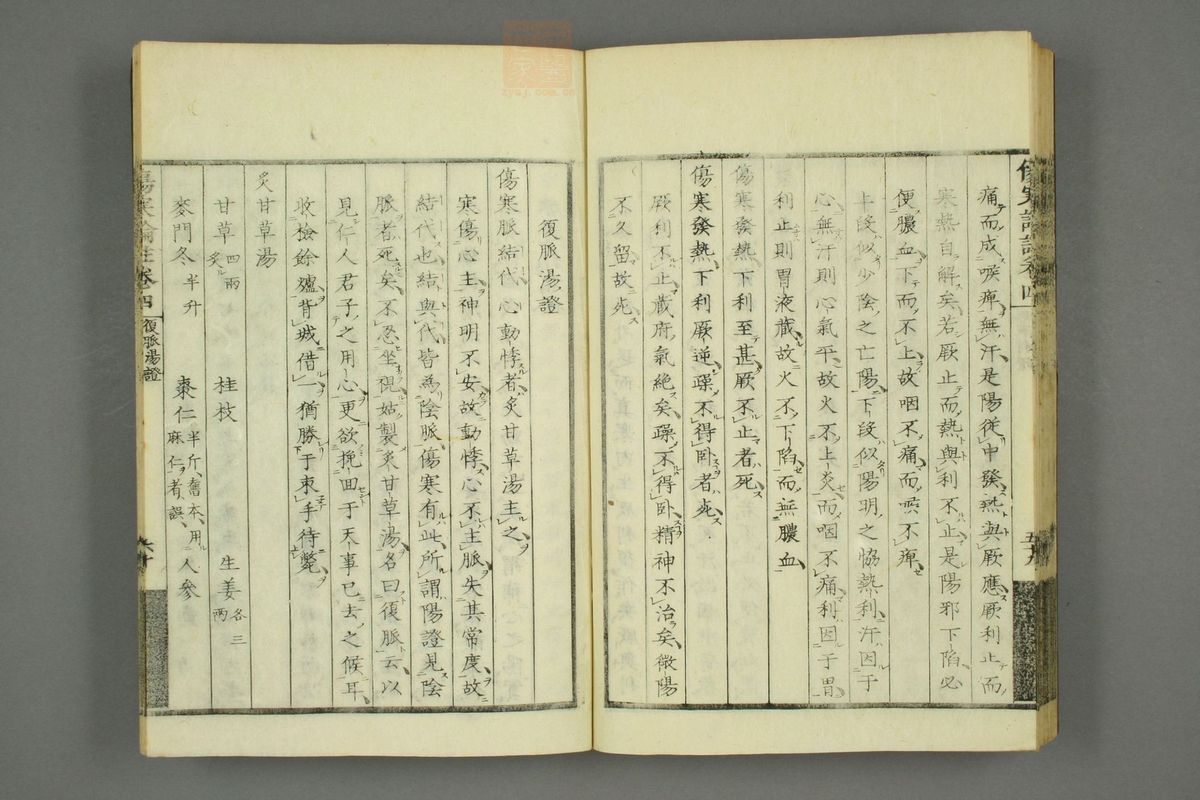 痛而成喉痺無汗是陽從中發熱與厥應厥利止而
寒熱自解矣若厥止而熱與利不止是陽邪下陷必
便膿血下而不上故咽不痛而喉不痺
上段似少陰之亡陽下段似陽明之協熱利汗因于
心無汗則心氣平故火不上炎而咽不痛利因于胃
利止則胃液藏故火不下陷而無膿血
傷寒發熱下利至甚厥不止者死
傷寒發熱下利厥逆躁不得臥者死
厥利不止藏府氣絕矣躁不得臥精神不治矣微陽
不久留故死
復脈湯證
傷寒脈結代心動悸者炙甘草湯主之
寒傷心主神明不安故動悸心不主脈失其常度故
結代也結與代皆為陰脈傷寒有此所謂陽證見陰
脈者死矣不忍坐視姑製炙甘草湯名曰復脈云以
見仁人君子之用心更欲挽回于天事已去之候耳
收捡餘爐背城借一猶勝于束手待斃
炙甘草湯
甘草 四兩炙 桂枝 生姜 各三兩
麥門冬 半升 棗仁 半斤舊本用麻仁者誤 人參
傷寒論註卷四 復脈湯證 六十
zysj.com.cn